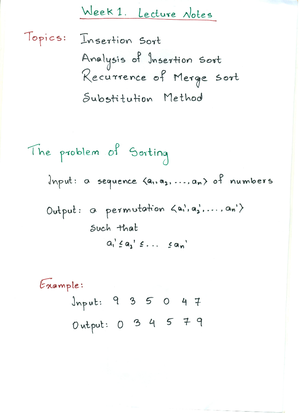 Week 1. Lecture Notes
Topics: Insertion Sort
Analysis of Insertion Sort
Recurrence of Merge Sort
Substitution Method
The problem of Sorting
Input: a sequence <a₁, a₂, ...., aₙ> of numbers
Output: a permutation <a₁', a₂', ...., aₙ'>
Such that
a₁' ≤ a₂' ≤ ... ≤ aₙ'
Example:
Input: 9 3 5 0 4 7
Output: 0 3 4 5 7 9